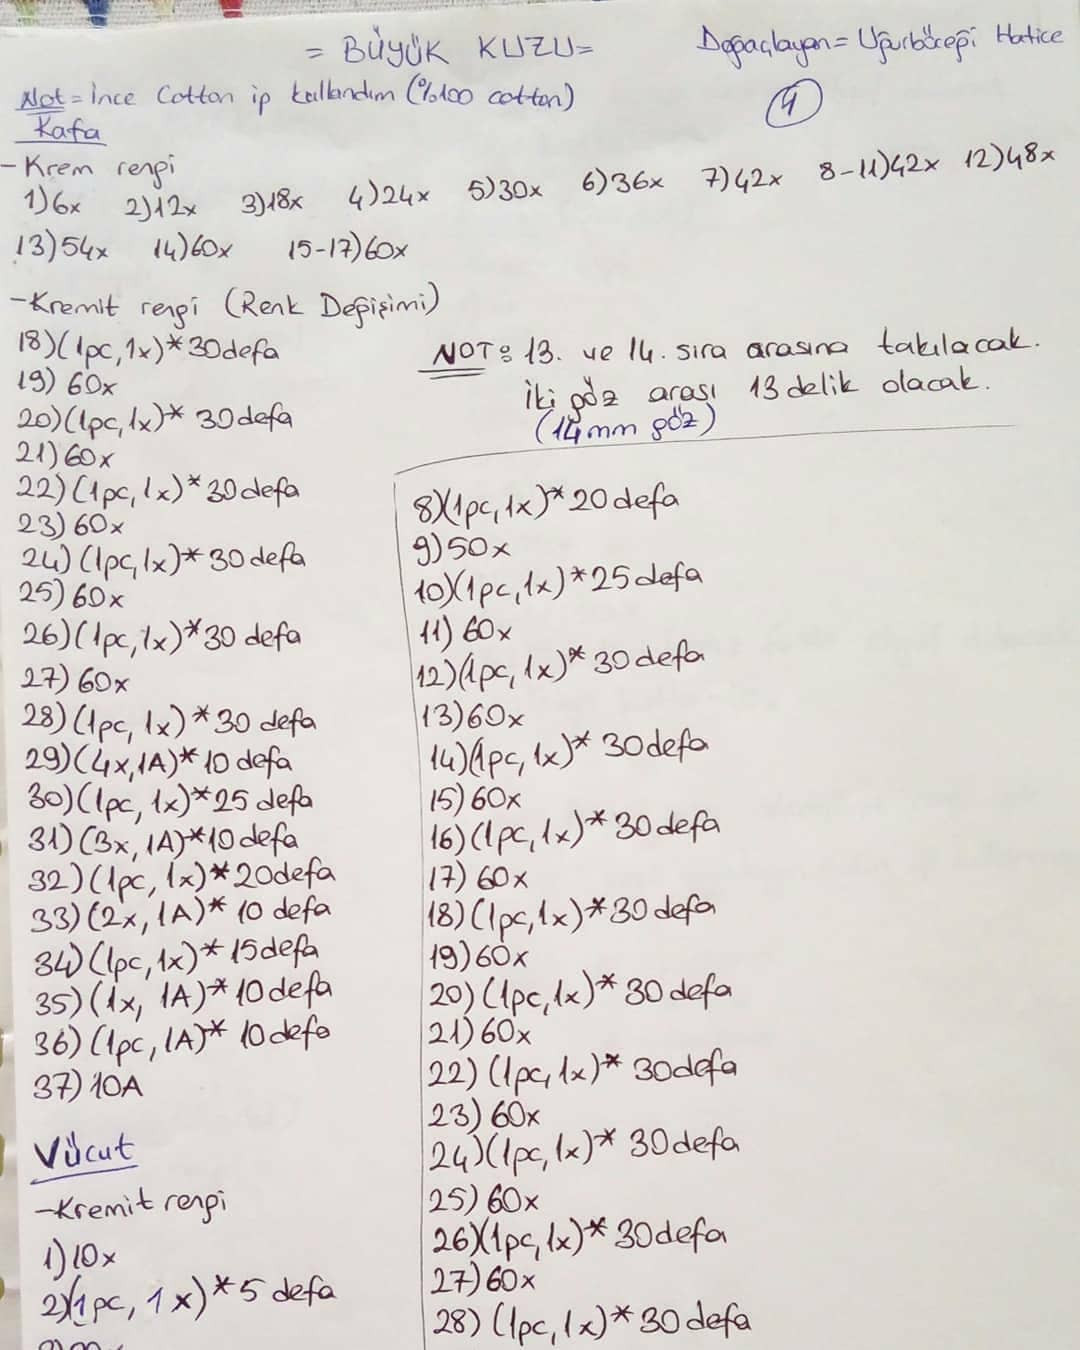 = BÜYÜK KUZU=
Doğaçlayan= Uğurböceği Hatice
Not= İnce Cotton ip kullandım (%100 cotton)
4
Kafa
-Krem rengi
1)6x 2)12x 3)18x 4)24x 5)30x 6)36x 7)42x 8-11)42x 12)48x
13)54x 14)60x 15-17)60x
-Kremit rengi (Renk Değişimi)
18)(1pc,1x)*30defa
19) 60x
20)(1pc,1x)* 30defa
21)60x
22)(1pc,1x)*30defa
23)60x
24)(1pc,1x)*30defa
25)60x
26)(1pc,1x)*30 defa
27)60x
28)(1pc,1x)*30 defa
29)(4x,1A)*10 defa
30)(1pc, 1x)*25 defa
31)(3x, 1A)*10defa
32)(1pc, 1x)*20defa
33)(2x, 1A)* 10 defa
34)(1pc,1x)*15defa
35)(1x, 1A)*10defa
36)(1pc, 1A)* 10defa
37)10A
Vücut
-Kremit rengi
1)10x
2)(1pc, 1x)*5 defa
NOT: 13. ve 14. sıra arasına takılacak.
İki göz arası 13 delik olacak.
(14mm göz)
8)(1pc,1x)*20defa
9)50x
10)(1pc,1x)*25defa
11) 60x
12)(1pc, 1x)* 30defa
13)60x
14)(1pc, 1x)* 30defa
15)60x
16)(1pc,1x)*30defa
17)60x
18)(1pc,1x)*30defa
19)60x
20)(1pc,1x)* 30 defa
21)60x
22)(1pc,1x)* 30defa
23)60x
24)(1pc,1x)* 30defa
25)60x
26)(1pc,1x)* 30defa
27)60x
28)(1pc,1x)*30defa